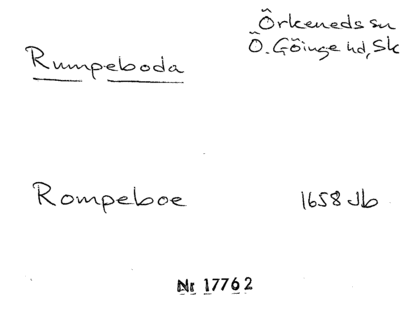 Örkeneds sn
Ö. Göinge hd, Sk
Rumpeboda
Rompeboe 1658 Jb
Nr 17762